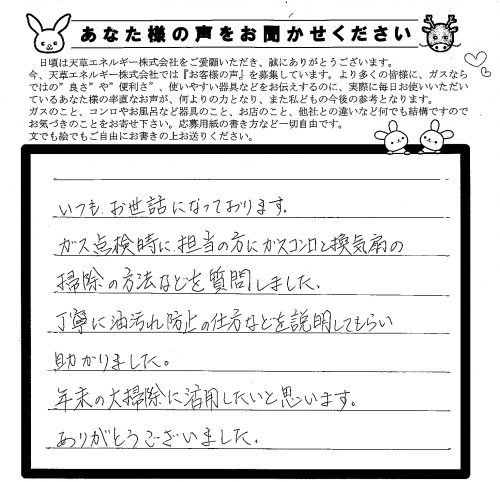 あなた様の声をお聞かせください
日頃は天草エネルギー株式会社をご愛顧いただき、誠にありがとうございます。
今、天草エネルギー株式会社では『お客様の声』を募集しています。より多くの皆様に、ガスなら
ではの”良さ”や”便利さ”、使いやすい器具などをお伝えするのに、実際に毎日お使いいただい
ているあなた様の率直なお声が、何よりの力となり、また私どもの今後の参考となります。
ガスのこと、コンロやお風呂など器具のこと、お店のこと、他社との違いなど何でも結構ですので
お気づきのことをお寄せ下さい。応募用紙の書き方など一切自由です。
文でも絵でもご自由にお書きの上お送りください。
いつも、お世話になっております。
ガス点検時に、担当の方にガスコンロと換気扇の
掃除の方法などを質問しました。
丁寧に油汚れ防止の仕方などを説明してもらい
助かりました。
年末の大掃除に活用したいと思います。
ありがとうございました。